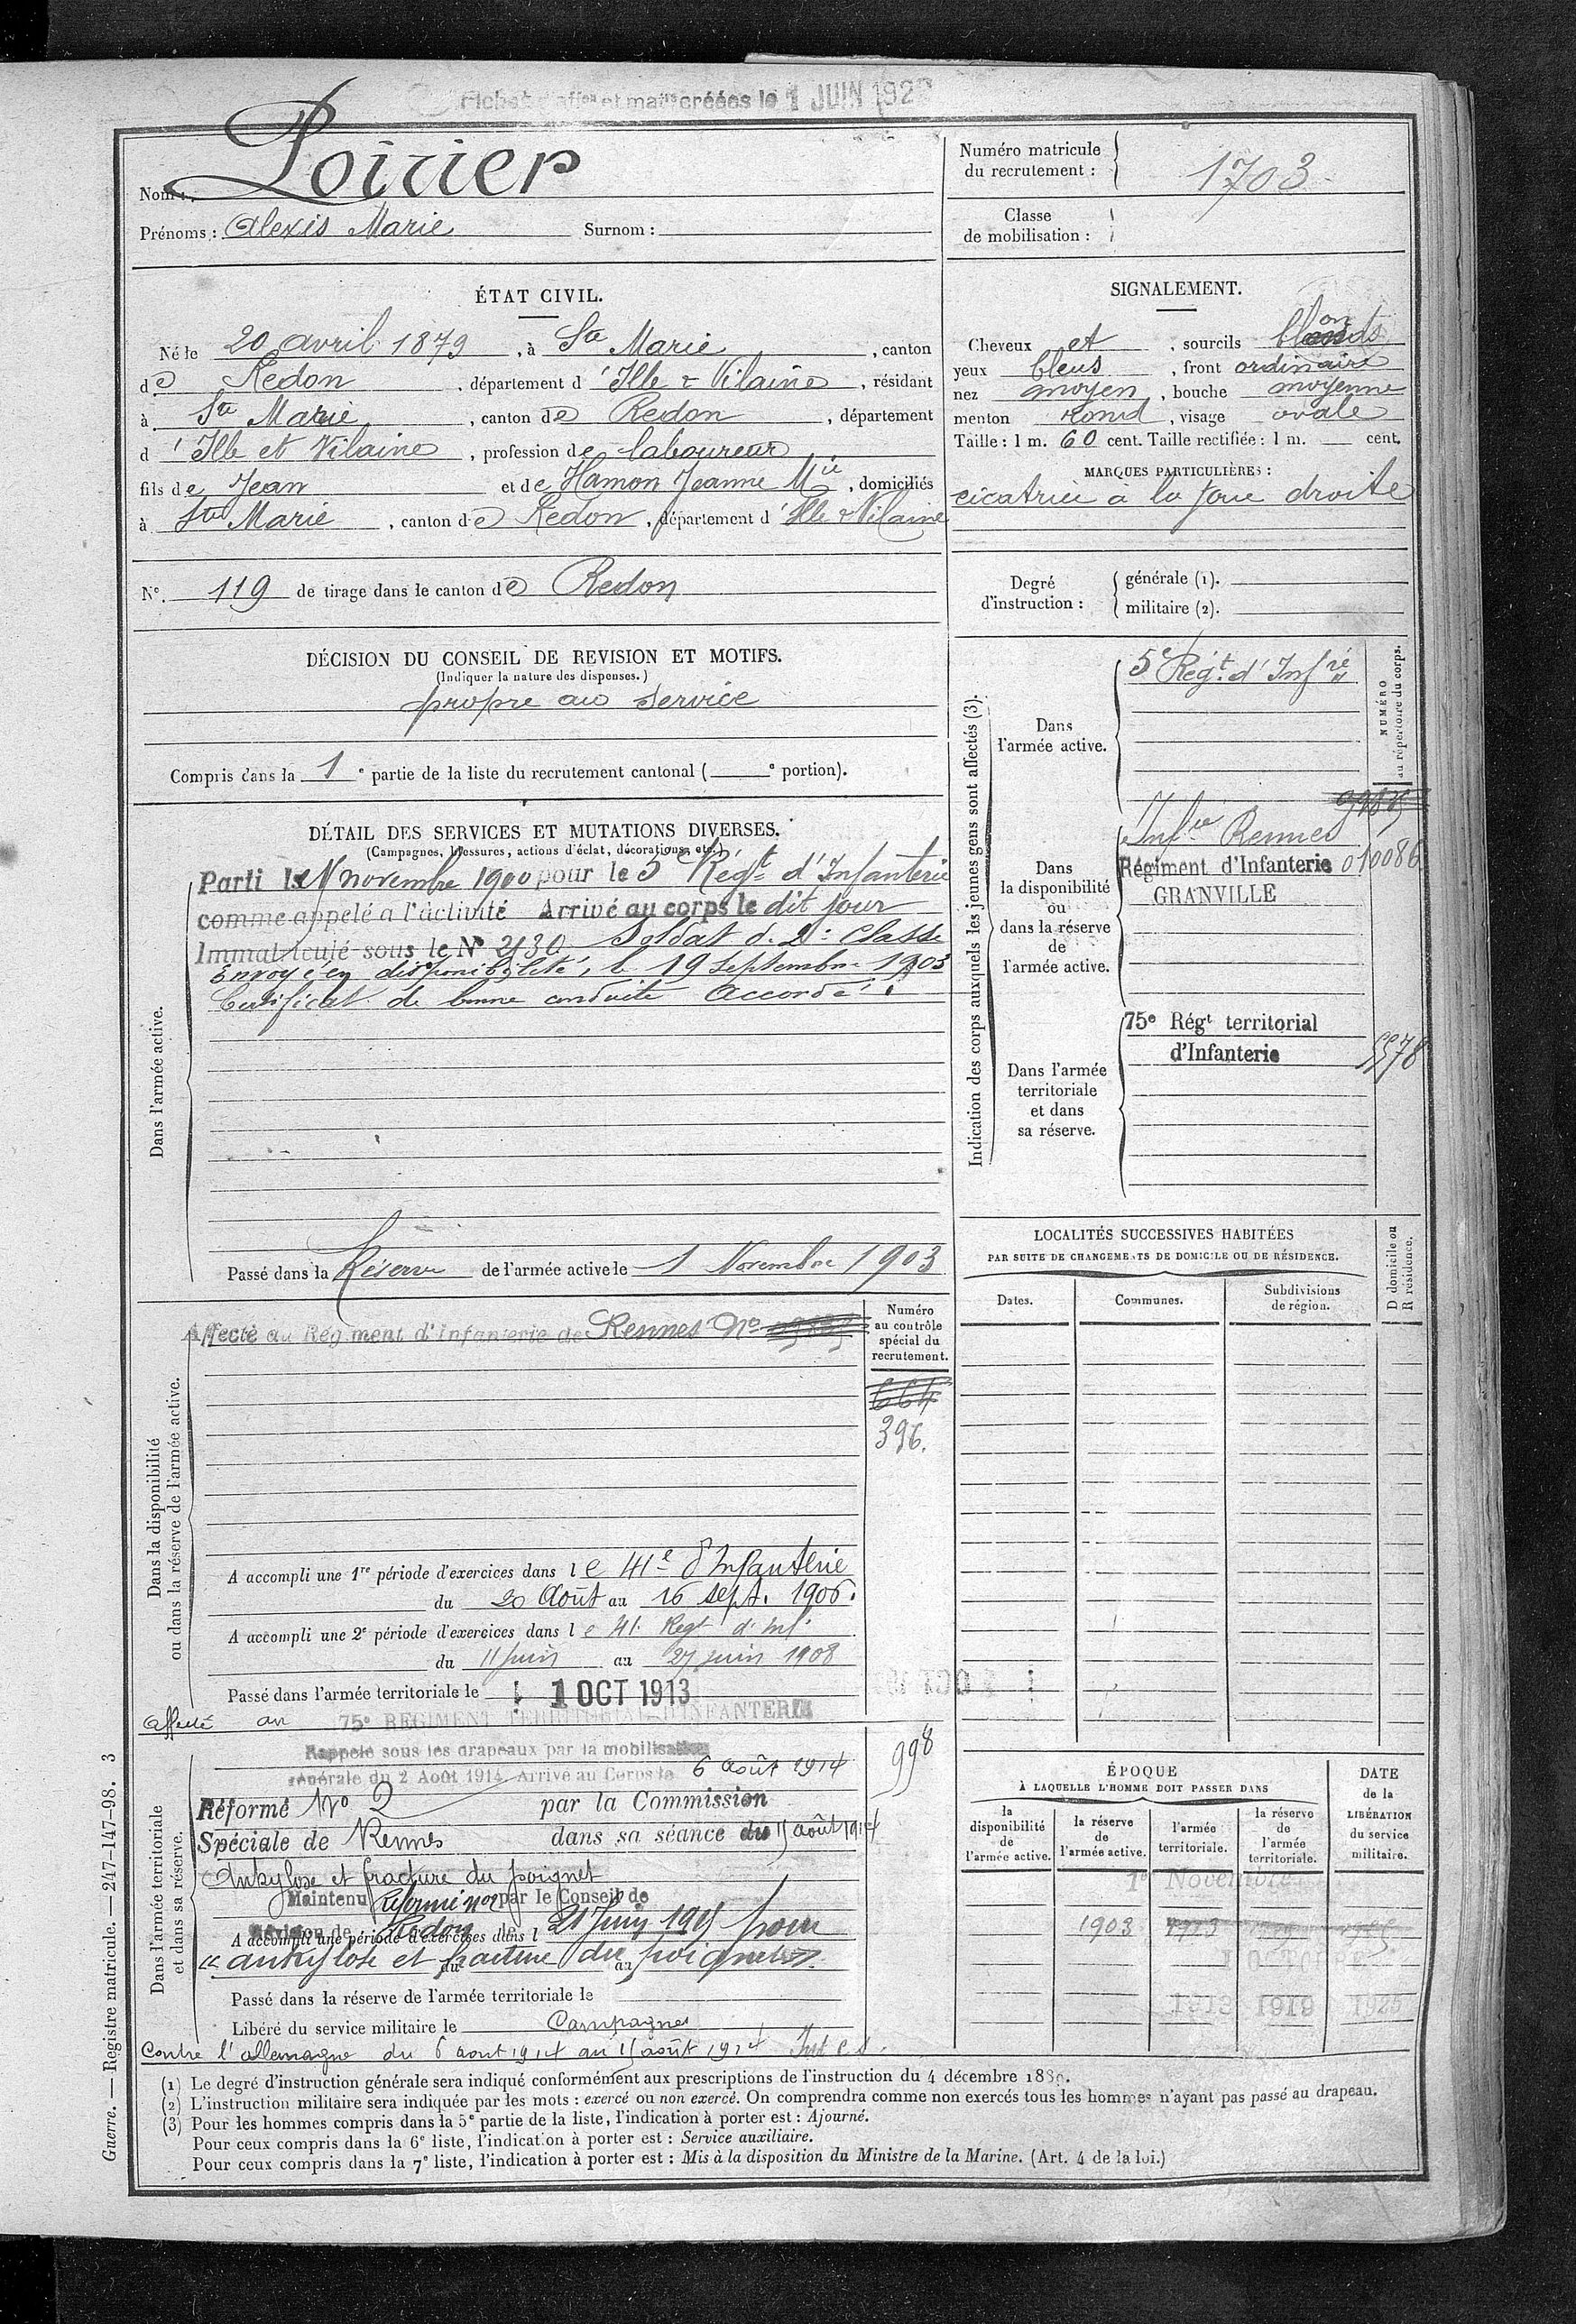 Fiches d'aff<sup>on</sup> et mat<sup>le</sup> créées le 1 JUIN 192
Nom : Poirier
Prénoms : Alexis Marie Surnom :
Numéro matricule du recrutement : 1703
Classe de mobilisation :
ÉTAT CIVIL.
Né le 20 avril 1879, à Ste Marie, canton
de Redon, département d'Ille & Vilaine, résidant
à Ste Marie, canton de Redon, département
d'Ille et Vilaine, profession de laboureur
fils de Jean et de Hamon Jeanne Mie, domiciliés
à Ste Marie, canton de Redon, département d'Ille & Vilaine
SIGNALEMENT.
Cheveux et, sourcils blonds
yeux bleus, front ordinaire
nez moyen, bouche moyenne
menton rond, visage ovale
Taille : 1 m. 60 cent. Taille rectifiée : 1 m. — cent.
MARQUES PARTICULIÈRES :
cicatrice à la joue droite
N°. 119 de tirage dans le canton de Redon
Degré d'instruction : générale (1).
militaire (2).
DÉCISION DU CONSEIL DE REVISION ET MOTIFS.
(Indiquer la nature des dispenses.)
propre au service
Compris dans la 1e partie de la liste du recrutement cantonal ( e portion).
DÉTAIL DES SERVICES ET MUTATIONS DIVERSES.
(Campagnes, blessures, actions d'éclat, décorations, etc.)
Dans l'armée active.
Parti le novembre 1900 pour le 5 Régt d'Infanterie
comme appelé à l'activité Arrivé au corps le dit jour
Immatriculé sous le N° 2130 Soldat de 2e Classe
Envoyé en disponibilité, le 19 septembre 1903
Certificat de bonne conduite Accordé.
Passé dans la Réserve de l'armée active le 1 Novembre 1903
Indication des corps auxquels les jeunes gens sont affectés (3).
NUMÉRO au répertoire du corps.
Dans l'armée active.
5e Régt. d'Infrie
Dans la disponibilité ou dans la réserve de l'armée active.
Infie Rennes
Régiment d'Infanterie 010086
GRANVILLE
Dans l'armée territoriale et dans sa réserve.
75e Régt territorial
d'Infanterie 5578
Dans la disponibilité ou dans la réserve de l'armée active.
Affecté au Régiment d'Infanterie de Rennes No
Numéro au contrôle spécial du recrutement.
664
396.
A accompli une 1re période d'exercices dans le 41e d'Infanterie
du 20 Août au 16 sept. 1906.
A accompli une 2e période d'exercices dans le 41 Regt d'Inf.
du 11 juin au 27 juin 1908
Passé dans l'armée territoriale le 1 OCT 1913
affecté au 75e REGIMENT TERRITORIAL D'INFANTERIE
Dans l'armée territoriale et dans sa réserve.
998
Rappelé sous les drapeaux par la mobilisation
générale du 2 Août 1914. Arrivé au Corps le 6 août 1914
Réformé No 2 par la Commission
Spéciale de Rennes dans sa séance du 15 août 1914
Ankylose et fracture du poignet
Maintenu Réformé no 2 par le Conseil de
Révision de Redon le 21 Juin 1915 pour
A accompli une période d'exercices dans l
« ankylose et fracture du poignet ».
du au
Passé dans la réserve de l'armée territoriale le
Libéré du service militaire le
Campagnes
Contre l'allemagne du 6 aout 1914 au 15 août 1914
LOCALITÉS SUCCESSIVES HABITÉES
PAR SUITE DE CHANGEMENTS DE DOMICILE OU DE RÉSIDENCE.
Dates. Communes. Subdivisions de région. D domicile ou R résidence.
ÉPOQUE
À LAQUELLE L'HOMME DOIT PASSER DANS
la disponibilité de l'armée active. la réserve de l'armée active. l'armée territoriale. la réserve de l'armée territoriale.
DATE de la LIBÉRATION du service militaire.
1er Novembre
1903 1913 1919 1925
1 OCTOBRE
1913 1919 1925
(1) Le degré d'instruction générale sera indiqué conformément aux prescriptions de l'instruction du 4 décembre 1889.
(2) L'instruction militaire sera indiquée par les mots : exercé ou non exercé. On comprendra comme non exercés tous les hommes n'ayant pas passé au drapeau.
(3) Pour les hommes compris dans la 5e partie de la liste, l'indication à porter est : Ajourné.
Pour ceux compris dans la 6e liste, l'indication à porter est : Service auxiliaire.
Pour ceux compris dans la 7e liste, l'indication à porter est : Mis à la disposition du Ministre de la Marine. (Art. 4 de la loi.)
Guerre. — Registre matricule. — 247-147-98. 3